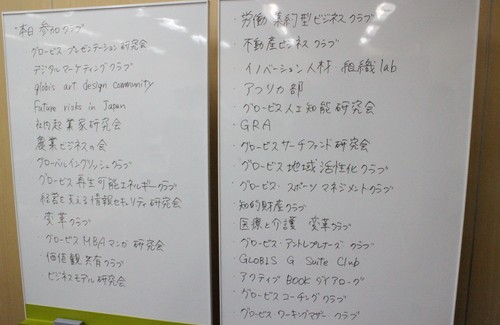 ・本日 参加クラブ
グロービス プレゼンテーション研究会
デジタルマーケティングクラブ
globis art design community
Future risks in Japan
社内起業家研究会
農業ビジネスの会
グローバルイングリッシュクラブ
グロービス 再生可能エネルギークラブ
経営を支える情報セキュリティ研究会
変革クラブ
グロービス MBAマンガ研究会
・価値観共有クラブ
ビジネスモデル研究会
・労働集約型ビジネスクラブ
・不動産ビジネスクラブ
・イノベーション人材 組織lab
・アフリカ部
・グロービス人工知能研究会
・GRA
・グロービスサーチファンド研究会
・グロービス地域活性化クラブ
・グロービス・スポーツマネジメントクラブ
・知的財産クラブ
・医療と介護 変革クラブ
・グロービス・アントレプレナーズ クラブ
・GLOBIS G Suite Club
・アクティブ BOOK ダイアローグ
・グロービスコーチングクラブ
・グロービスワーキングマザー クラブ